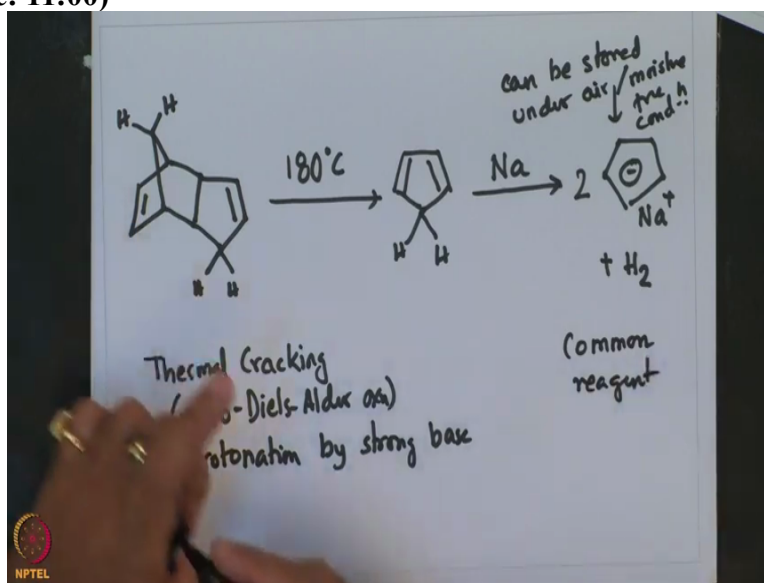 11:00)
can be stored
under air/moisture
free cond
H H
180°C
Na
2
Na+
H H
H H
+ H2
Thermal Cracking
-Diels-Alder rxn)
rotonation by strong base
Common
reagent
NPTEL